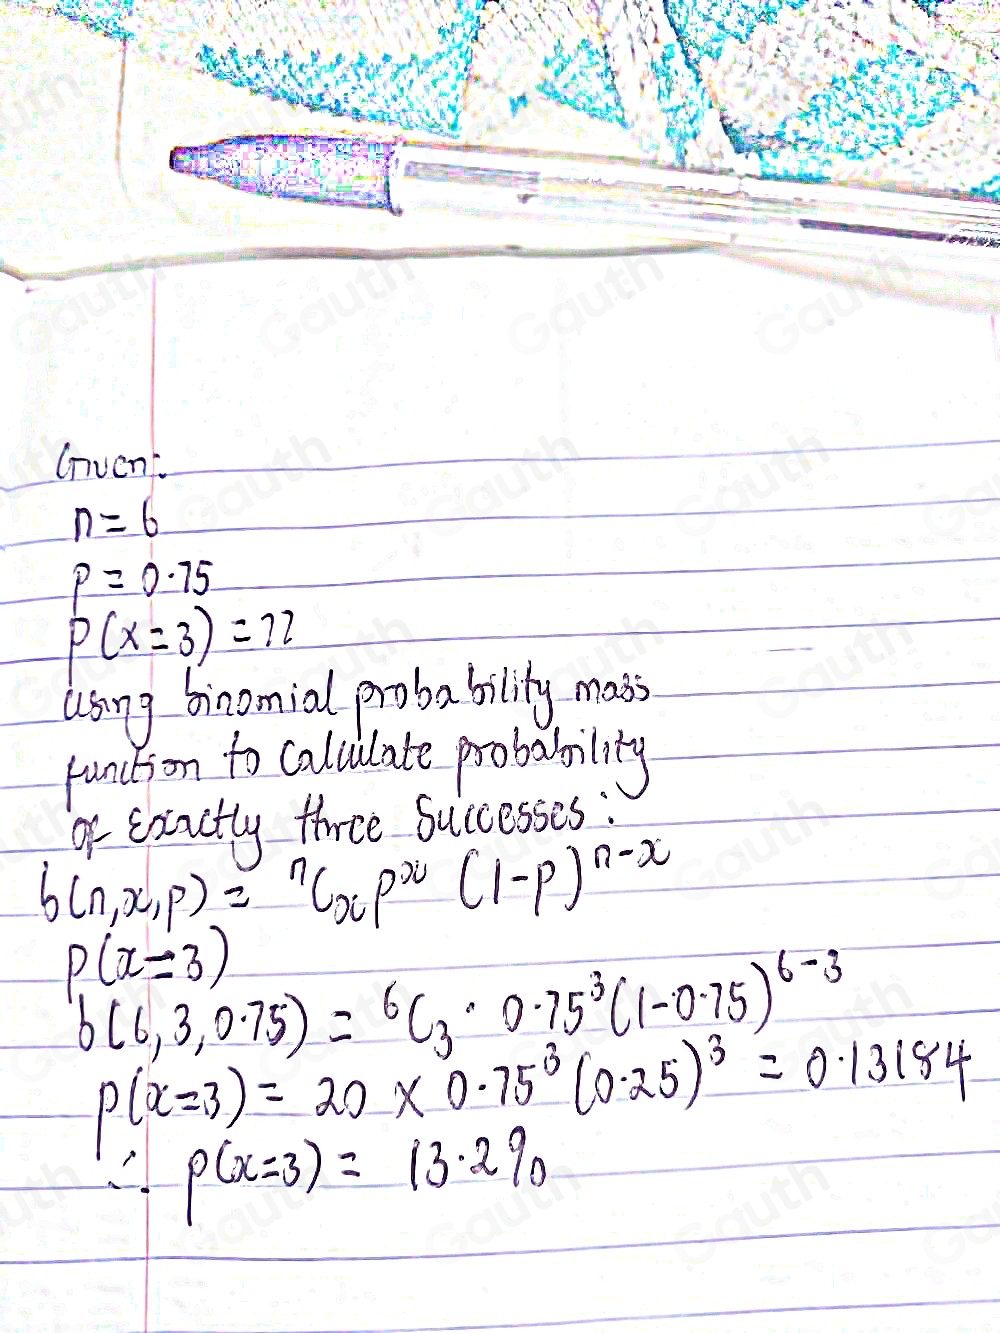 Given:
n = 6
p = 0.75
p(x=3) = ??
using binomial probability mass
function to calculate probability
of Exactly three Successes:
b(n,x,p) = ⁿCₓ pˣ (1-p)ⁿ⁻ˣ
p(x=3)
b(6,3,0.75) = ⁶C₃ · 0.75³(1-0.75)⁶⁻³
p(x=3) = 20 × 0.75³ (0.25)³ = 0.13184
∴ p(x=3) = 13.2%
Gauth